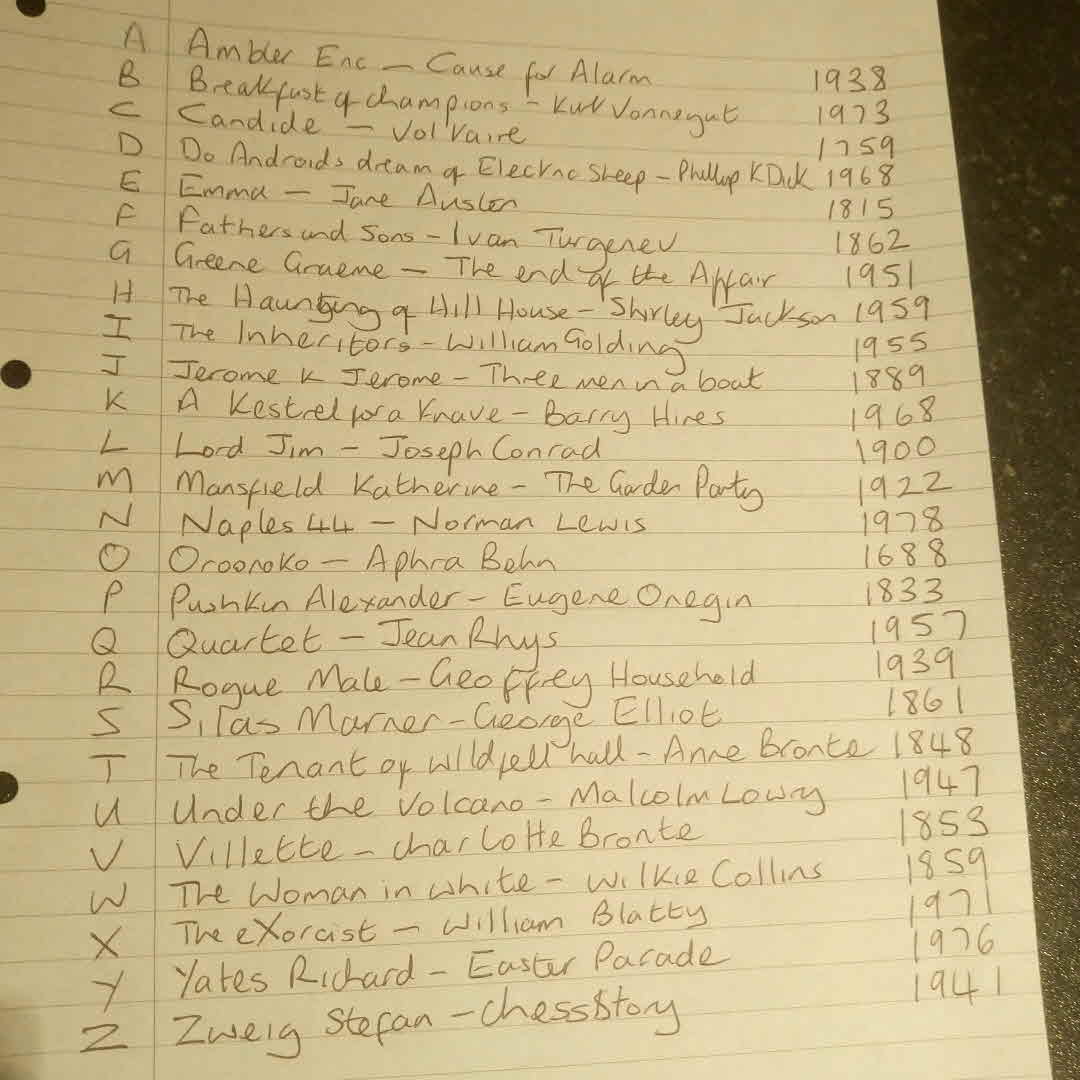 A Ambler Eric – Cause for Alarm 1938
B Breakfast of champions – Kurt Vonnegut 1973
C Candide – Vol'vaire 1759
D Do Androids dream of Electric Sheep – Phillip K Dick 1968
E Emma – Jane Austen 1815
F Fathers and Sons – Ivan Turgenev 1862
G Greene Graeme – The end of the Affair 1951
H The Haunting of Hill House – Shirley Jackson 1959
I The Inheritors – William Golding 1955
J Jerome K Jerome – Three men in a boat 1889
K A Kestrel for a Knave – Barry Hines 1968
L Lord Jim – Joseph Conrad 1900
M Mansfield Katherine – The Garden Party 1922
N Naples 44 – Norman Lewis 1978
O Oroonoko – Aphra Behn 1688
P Pushkin Alexander – Eugene Onegin 1833
Q Quartet – Jean Rhys 1957
R Rogue Male – Geoffrey Household 1939
S Silas Marner – George Elliot 1861
T The Tenant of Wildfell hall – Anne Bronte 1848
U Under the Volcano – Malcolm Lowry 1947
V Villette – charlotte Bronte 1853
W The Woman in white – Wilkie Collins 1859
X The eXorcist – William Blatty 1971
Y Yates Richard – Easter Parade 1976
Z Zweig Stefan – chess Story 1941